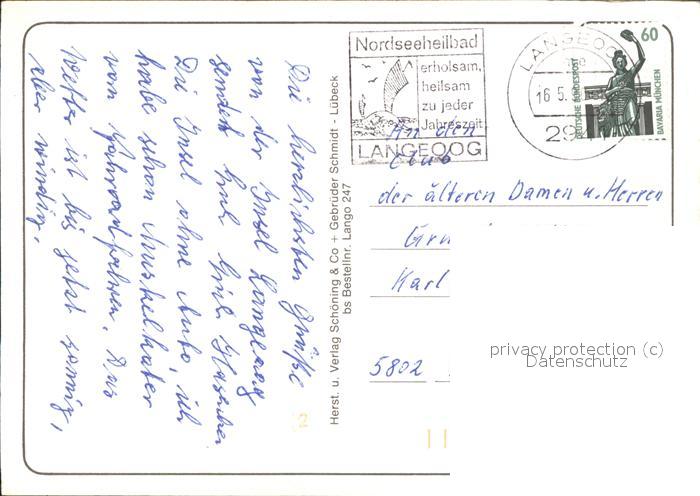 Die herzlichsten Grüße
von der Insel Langeoog
sendet Ihnen
Die Insel ohne Auto, ich
habe schon Muskelkater
vom Fahrradfahren. Das
Wetter ist bis jetzt sonnig,
aber windig.
Herst. u. Verlag Schöning & Co + Gebrüder Schmidt - Lübeck
bs Bestellnr. Lango 247
Nordseeheilbad
erholsam,
heilsam
zu jeder
Jahreszeit
LANGEOOG
LANGEOOG
16.5.
29
60
DEUTSCHE BUNDESPOST
BAVARIA MÜNCHEN
An den
Club
der älteren Damen u. Herren
Karl
5802
privacy protection (c)
Datenschutz